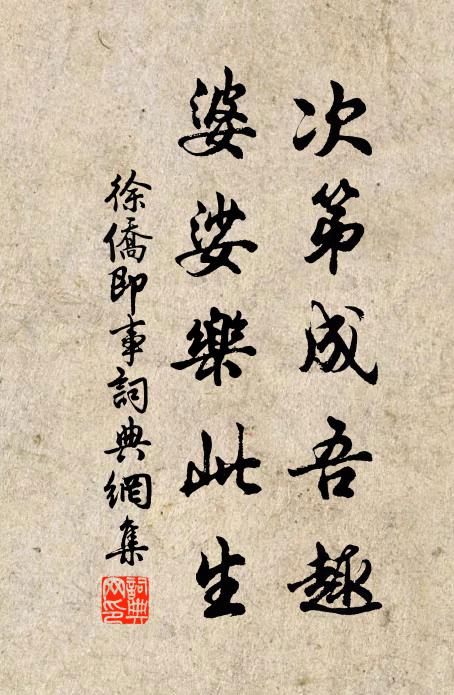 次第成吾趣
婆娑樂此生
徐僑即事詞典網集
詞典網印